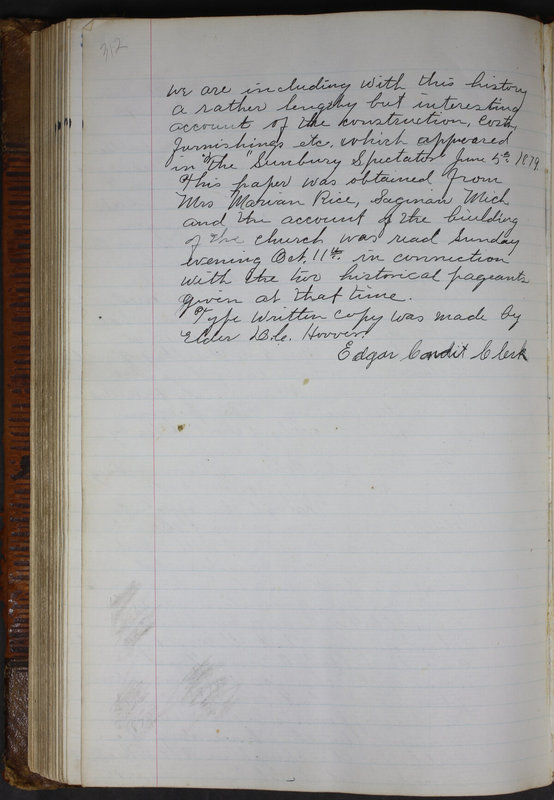 312
we are including with this history
a rather lengthy but interesting
account of the construction, cost,
furnishings etc. which appeared
in "The Sunbury Spectator" June 5th 1879.
This paper was obtained from
Mrs Marvan Rice, Saginaw Mich
and the account of the building
of the church was read Sunday
evening Oct. 11th. in connection
with the two historical pageants
given at that time.
Type written copy was made by
Elder D.C. Hoover.
Edgar Condit Clerk